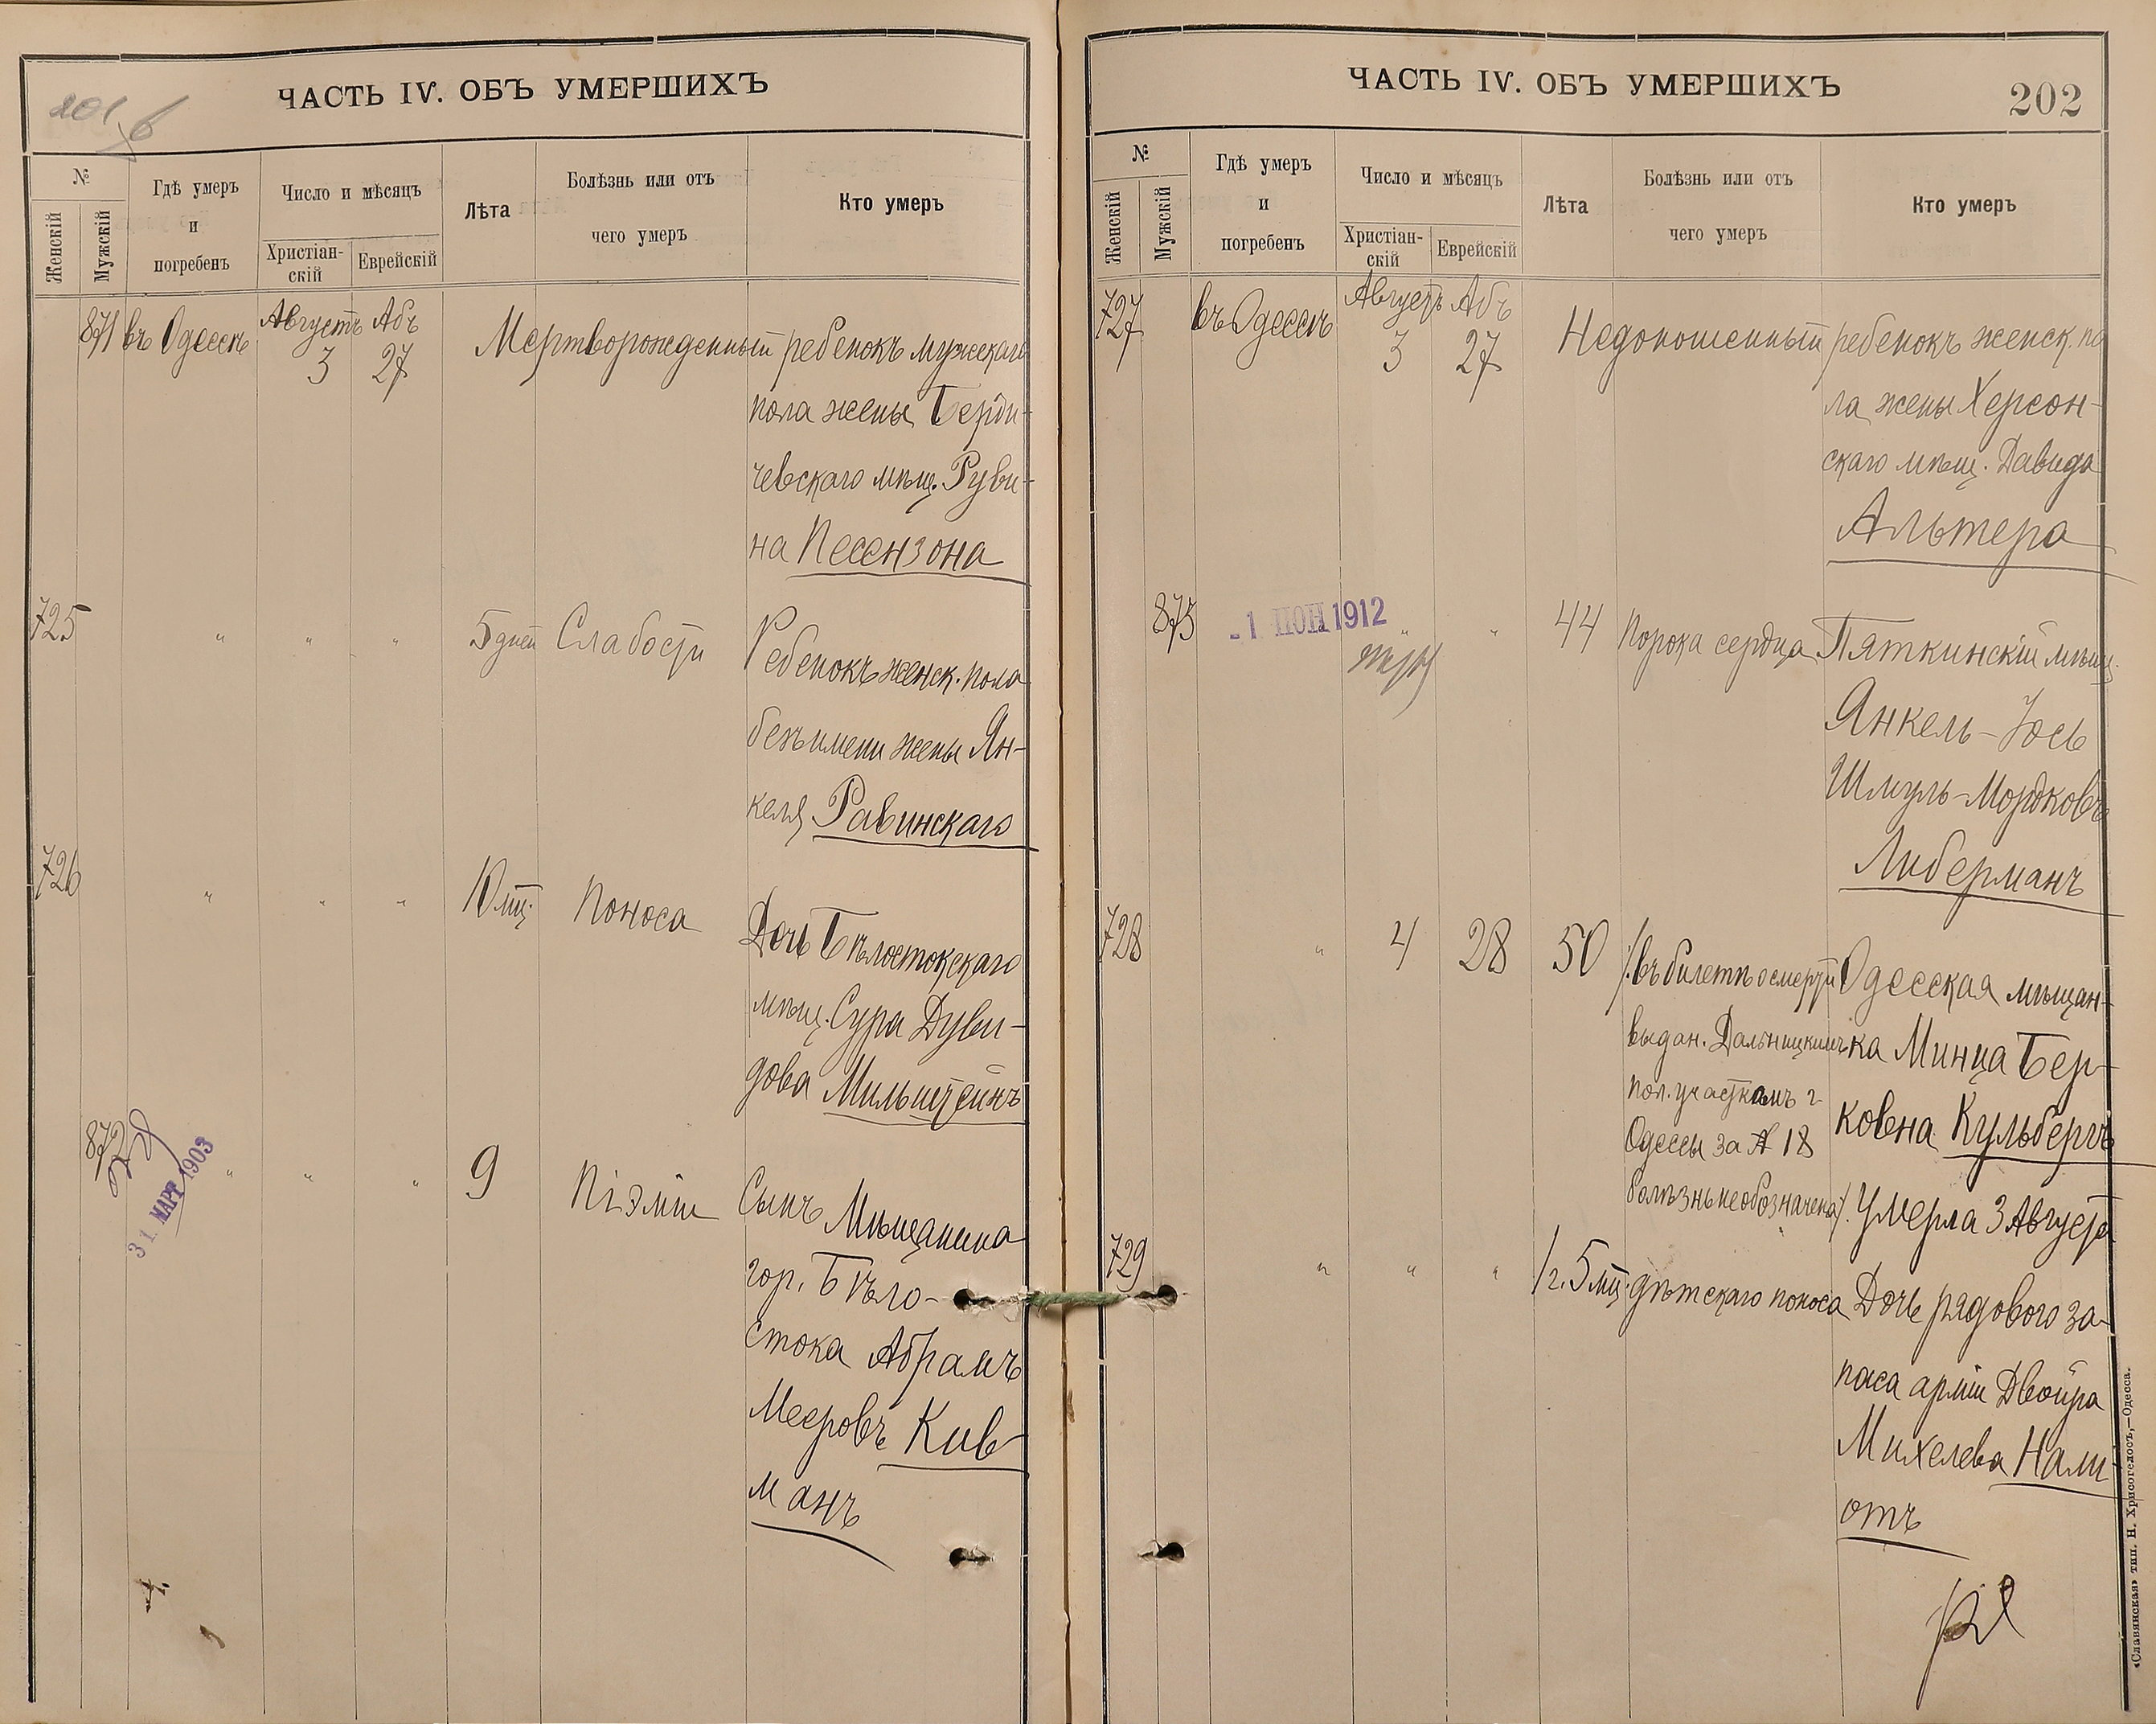 201
ЧАСТЬ IV. ОБЪ УМЕРШИХЪ
№
Женскій
Мужскій
Гдѣ умеръ
и
погребенъ
Число и мѣсяцъ
Христіан-
скій
Еврейскій
Лѣта
Болѣзнь или отъ
чего умеръ
Кто умеръ
871 въ Одессѣ Августъ 3 Абъ 27 Мертворожденный ребенокъ мужскаго
пола жены Берди-
чевскаго мѣщ. Руви-
на Песензона
725 " " " 5 дней Слабости Ребенокъ женск. пола
безъ имени жены Ян-
келя Равинскаго
726 " " " 10 мц. Поноса Дочь Бѣлостокскаго
мѣщ. Сура Дуви-
дова Мильштейнъ
872 " " " 9 Піэміи Сынъ Мѣщанина
гор. Бѣло-
стока Абрамъ
Мееровъ Кив-
манъ
31 МАРТ 1903
ЧАСТЬ IV. ОБЪ УМЕРШИХЪ
202
№
Женскій
Мужскій
Гдѣ умеръ
и
погребенъ
Число и мѣсяцъ
Христіан-
скій
Еврейскій
Лѣта
Болѣзнь или отъ
чего умеръ
Кто умеръ
727 въ Одессѣ Августъ 3 Абъ 27 Недоношенный ребенокъ женск. по
ла жены Херсон-
скаго мѣщ. Давида
Альтера
873 - 1 ІЮН 1912 " " 44 Порока сердца Пяткинскій мѣщ.
Янкель-Іось
Шмуль-Мордковъ
Либерманъ
728 " 4 28 50 /.въ билетѣ о смерти Одесская мѣщан-
выдан. Дальницкимъ ка Минца Бер-
пол. участкомъ г.
Одессы за № 18 ковна Кульбергъ
болѣзнь не обозначена/. Умерла 3 Августа
729 " " " 1 г. 5 мц. дѣтскаго поноса Дочь рядового за-
паса арміи Двойра
Михелева Нали-
отъ
«Славянская» тип. Н. Хрисогелосъ,—Одесса.